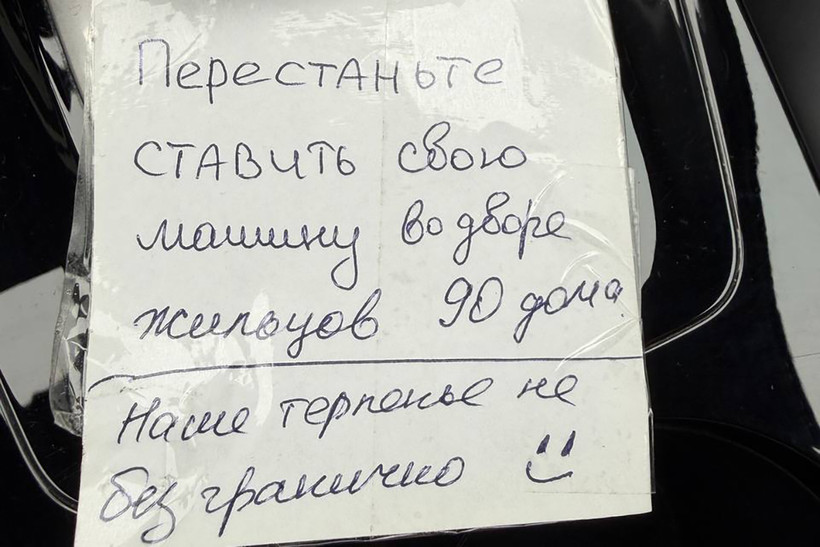 Перестаньте
ставить свою
машину во дворе
жильцов 90 дома.
Наше терпенье не
без гранично